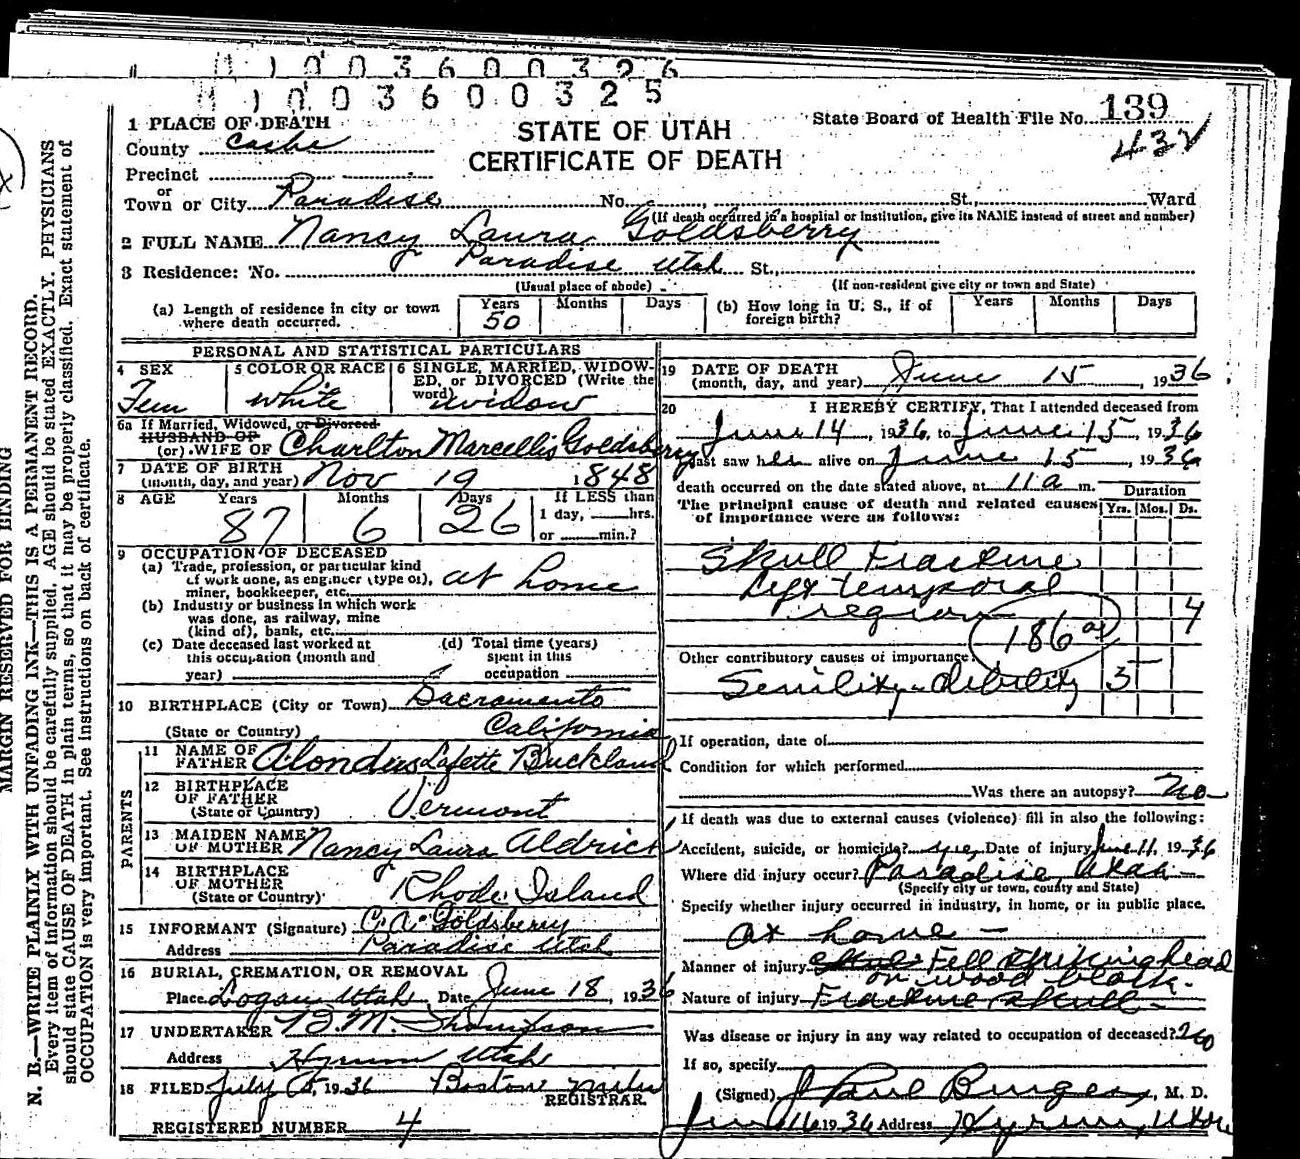 1 0 0 3 6 0 0 3 2 6
1 0 0 3 6 0 0 3 2 5
State Board of Health File No. 139
432
STATE OF UTAH
CERTIFICATE OF DEATH
1 PLACE OF DEATH
County Cache
Precinct
or
Town or City Paradise No. St., Ward
(If death occurred in a hospital or institution, give its NAME instead of street and number)
2 FULL NAME Nancy Laura Goldsberry
3 Residence: No. Paradise Utah St.,
(Usual place of abode) (If non-resident give city or town and State)
(a) Length of residence in city or town where death occurred. Years 50 Months Days
(b) How long in U. S., if of foreign birth? Years Months Days
PERSONAL AND STATISTICAL PARTICULARS
4 SEX Fem
5 COLOR OR RACE white
6 SINGLE, MARRIED, WIDOWED, or DIVORCED (Write the word) widow
6a If Married, Widowed, or Divorced
HUSBAND OF
(or) WIFE OF Charlton Marcellis Goldsberry
7 DATE OF BIRTH
(month, day, and year) Nov 19 1848
8 AGE Years 87 Months 6 Days 26 If LESS than 1 day, hrs. or min.?
9 OCCUPATION OF DECEASED
(a) Trade, profession, or particular kind of work done, as engineer (type of), miner, bookkeeper, etc. at home
(b) Industry or business in which work was done, as railway, mine (kind of), bank, etc.
(c) Date deceased last worked at this occupation (month and year)
(d) Total time (years) spent in this occupation
10 BIRTHPLACE (City or Town) Sacramento
(State or Country) California
PARENTS
11 NAME OF FATHER Alondus Lafette Buckland
12 BIRTHPLACE OF FATHER
(State or Country) Vermont
13 MAIDEN NAME OF MOTHER Nancy Laura Aldrich
14 BIRTHPLACE OF MOTHER
(State or Country) Rhode Island
15 INFORMANT (Signature) C. A. Goldsberry
Address Paradise Utah
16 BURIAL, CREMATION, OR REMOVAL
Place Logan Utah Date June 18, 1936
17 UNDERTAKER B. M. Thompson
Address Hyrum Utah
18 FILED July 1936
REGISTRAR
REGISTERED NUMBER 4
19 DATE OF DEATH
(month, day, and year) June 15, 1936
20 I HEREBY CERTIFY, That I attended deceased from
June 14, 1936, to June 15, 1936
last saw her alive on June 15, 1936
death occurred on the date stated above, at 11 a m.
The principal cause of death and related causes of importance were as follows:
Duration
Yrs. Mos. Ds.
Skull Fracture
Left temporal
region 4
186a
Other contributory causes of importance:
Senility - debility 3
If operation, date of
Condition for which performed
Was there an autopsy? no
If death was due to external causes (violence) fill in also the following:
Accident, suicide, or homicide? Date of injury June 11, 1936
Where did injury occur? Paradise, Utah
(Specify city or town, county and State)
Specify whether injury occurred in industry, in home, or in public place.
At home
Manner of injury Fell striking head
on wood block.
Nature of injury Fracture skull
Was disease or injury in any way related to occupation of deceased? no
If so, specify
(Signed) J Paul Burgess, M. D.
Jun 16 1936 Address Hyrum, Utah
MARGIN RESERVED FOR BINDING
N. B.—WRITE PLAINLY WITH UNFADING INK—THIS IS A PERMANENT RECORD.
Every item of information should be carefully supplied. AGE should be stated EXACTLY. PHYSICIANS
should state CAUSE OF DEATH in plain terms, so that it may be properly classified. Exact statement of
OCCUPATION is very important. See instructions on back of certificate.